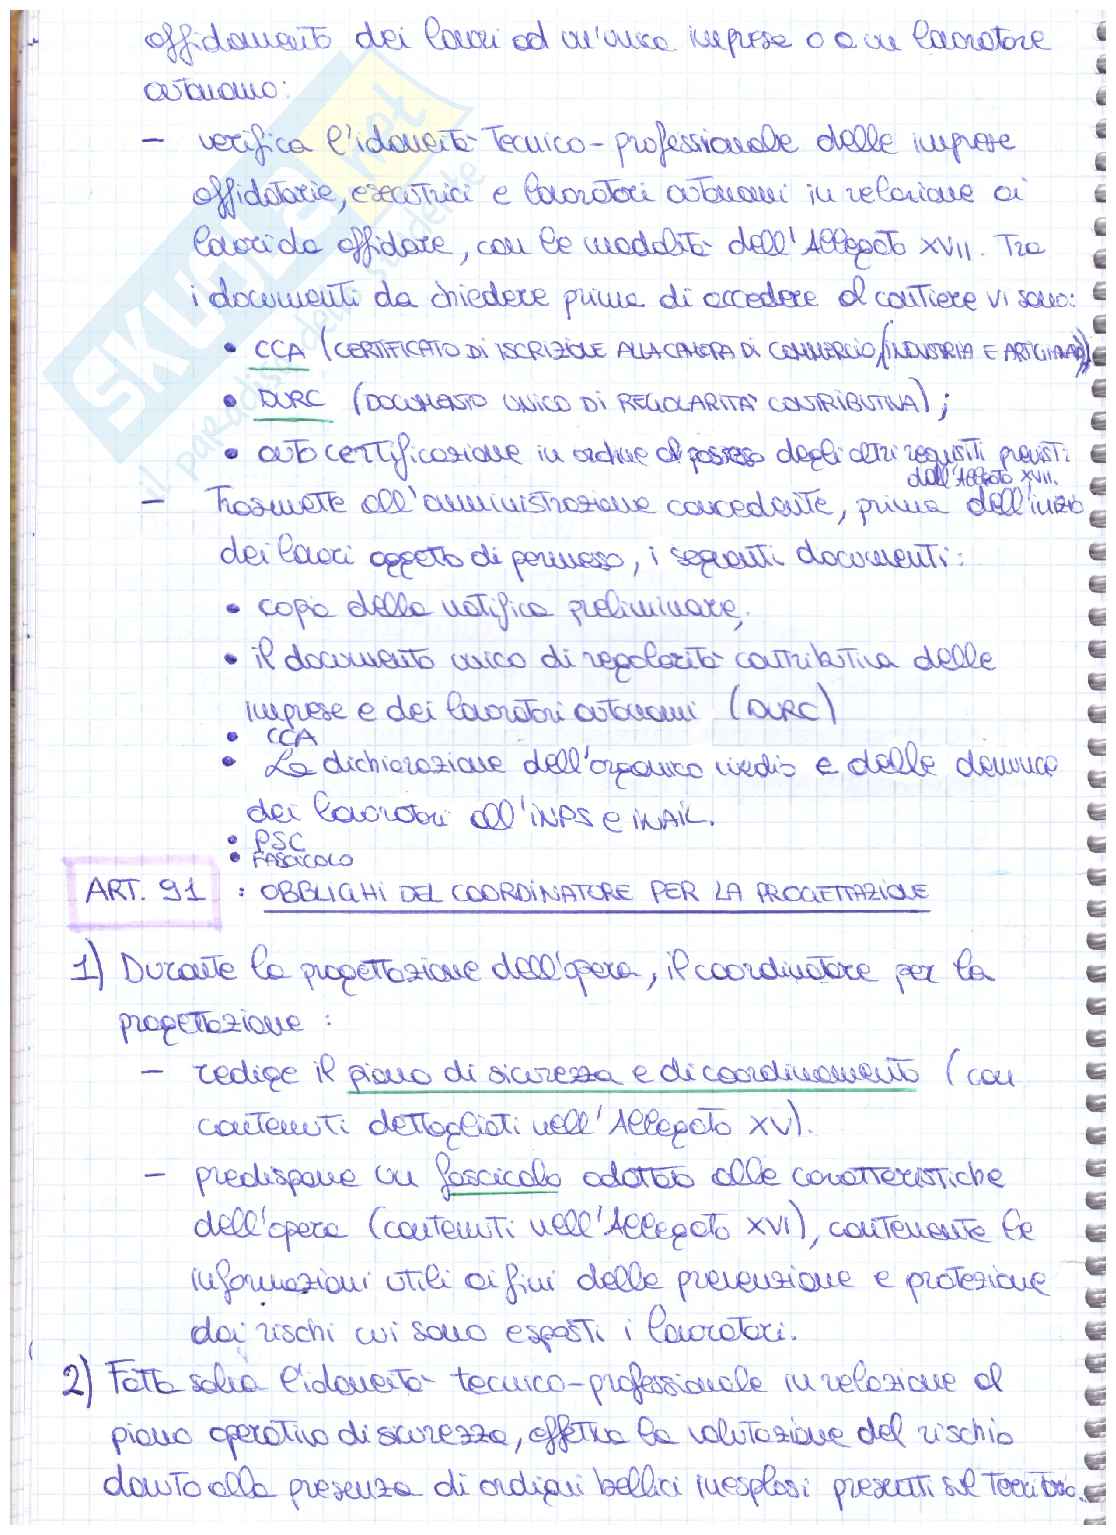 affidamento dei lavori ad un'unica imprese o a un lavoratore
autonomo:
– verifica l'idoneità tecnico-professionale delle imprese
affidatarie, esecutrici e lavoratori autonomi in relazione ai
lavori da affidare, con le modalità dell'Allegato XVII. Tra
i documenti da chiedere prima di accedere al cantiere vi sono:
• CCA (CERTIFICATO DI ISCRIZIONE ALLA CAMERA DI COMMERCIO, (INDUSTRIA E ARTIGIANATO)
• DURC (DOCUMENTO UNICO DI REGOLARITÀ CONTRIBUTIVA);
• autocertificazione in ordine al possesso degli altri requisiti previsti
dall'Allegato XVII.
– trasmette all'amministrazione concedente, prima dell'inizio
dei lavori oggetto di permesso, i seguenti documenti:
• copia della notifica preliminare;
• il documento unico di regolarità contributiva delle
imprese e dei lavoratori autonomi (DURC)
• CCA
• La dichiarazione dell'organico medio e delle denunce
dei lavoratori all'INPS e INAIL.
• PSC
• FASCICOLO
ART. 91 : OBBLIGHI DEL COORDINATORE PER LA PROGETTAZIONE
1) Durante la progettazione dell'opera, il coordinatore per la
progettazione:
– redige il piano di sicurezza e di coordinamento (con
contenuti dettagliati nell'Allegato XV).
– predispone un fascicolo adattato alle caratteristiche
dell'opera (contenuti nell'Allegato XVI), contenente le
informazioni utili ai fini della prevenzione e protezione
dai rischi cui sono esposti i lavoratori.
2) Fatta salva l'idoneità tecnico-professionale in relazione al
piano operativo di sicurezza, effettua la valutazione del rischio
dovuto alla presenza di ordigni bellici inesplosi presenti sul territorio.
SKUOLA.net
il paradiso dello studente